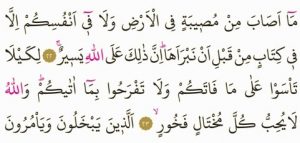 مَٓا اَصَابَ مِنْ مُصٖيبَةٍ فِي الْاَرْضِ وَلَا فٖٓي اَنْفُسِكُمْ اِلَّا
فٖي كِتَابٍ مِنْ قَبْلِ اَنْ نَبْرَاَهَاؕ اِنَّ ذٰلِكَ عَلَى اللّٰهِ يَسٖيرٌۚ ﴿٢٢﴾ لِكَيْلَا
تَأْسَوْا عَلٰى مَا فَاتَكُمْ وَلَا تَفْرَحُوا بِمَٓا اٰتٰيكُمْؕ وَاللّٰهُ
لَا يُحِبُّ كُلَّ مُخْتَالٍ فَخُورٍۙ ﴿٢٣﴾ اَلَّذٖينَ يَبْخَلُونَ وَيَأْمُرُونَ